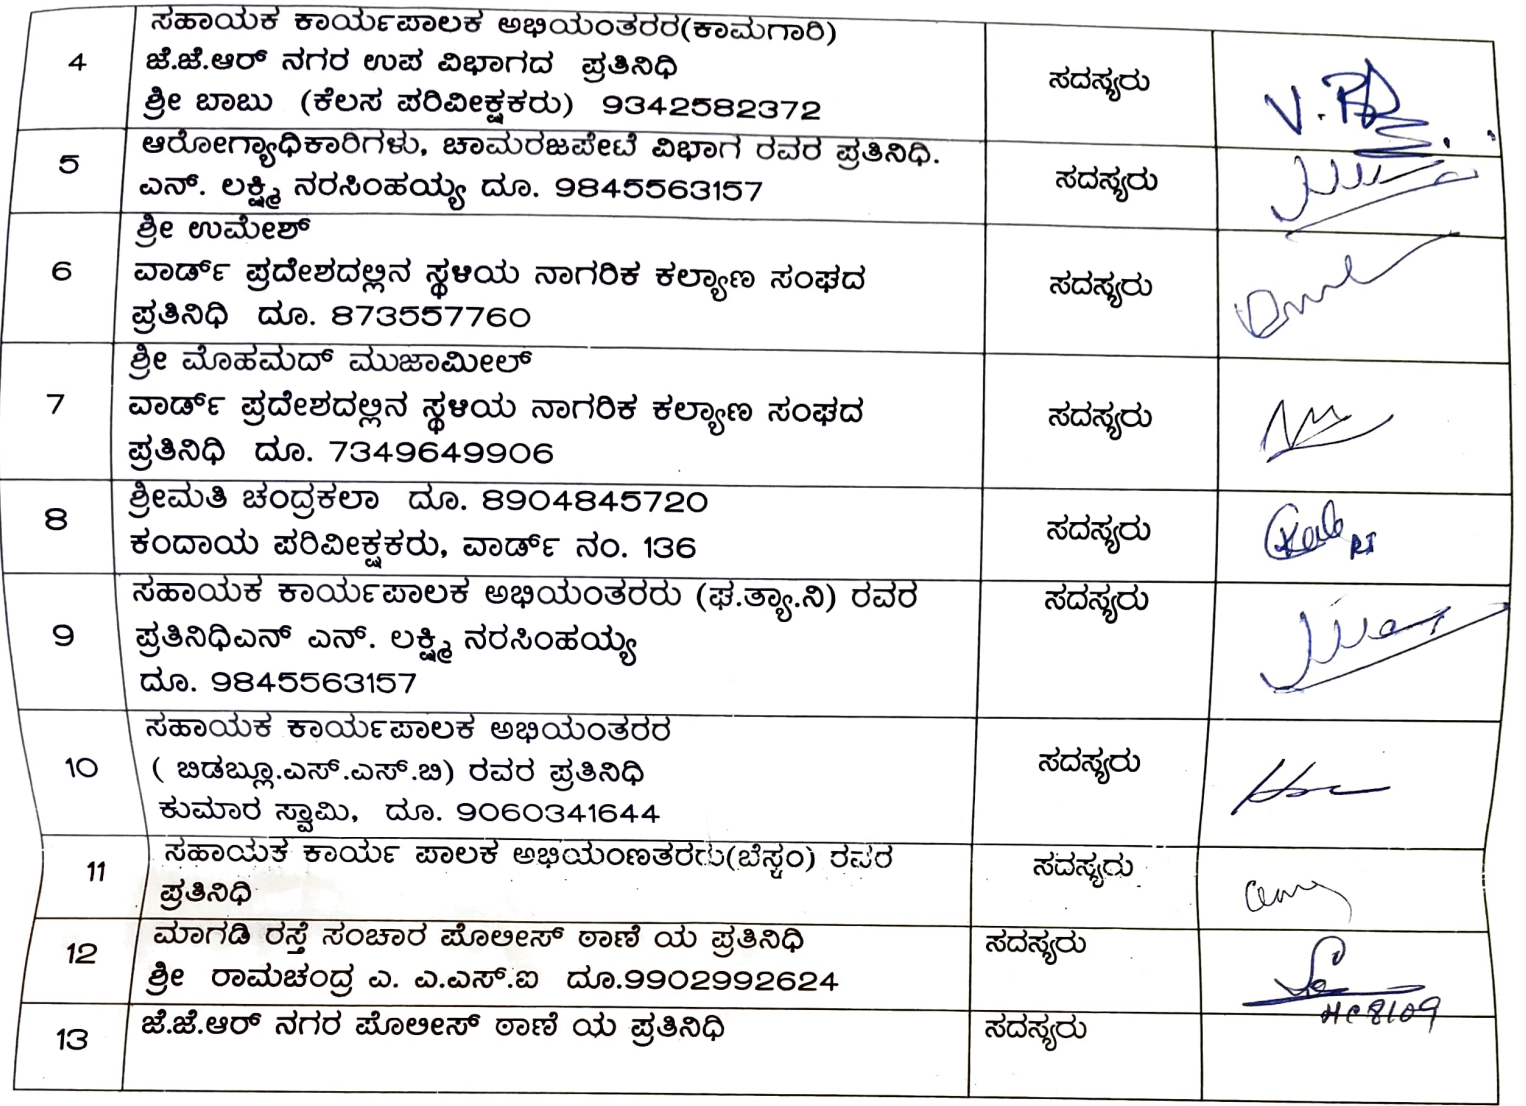 4
ಸಹಾಯಕ ಕಾರ್ಯಪಾಲಕ ಅಭಿಯಂತರರ(ಕಾಮಗಾರಿ)
ಜೆ.ಜೆ.ಆರ್ ನಗರ ಉಪ ವಿಭಾಗದ ಪ್ರತಿನಿಧಿ
ಶ್ರೀ ಬಾಬು (ಕೆಲಸ ಪರಿವೀಕ್ಷಕರು) 9342582372
ಸದಸ್ಯರು
5
ಆರೋಗ್ಯಾಧಿಕಾರಿಗಳು, ಚಾಮರಜಪೇಟೆ ವಿಭಾಗ ರವರ ಪ್ರತಿನಿಧಿ.
ಎನ್. ಲಕ್ಷ್ಮಿ ನರಸಿಂಹಯ್ಯ ದೂ. 9845563157
ಸದಸ್ಯರು
6
ಶ್ರೀ ಉಮೇಶ್
ವಾರ್ಡ್ ಪ್ರದೇಶದಲ್ಲಿನ ಸ್ಥಳಿಯ ನಾಗರಿಕ ಕಲ್ಯಾಣ ಸಂಘದ
ಪ್ರತಿನಿಧಿ ದೂ. 873557760
ಸದಸ್ಯರು
7
ಶ್ರೀ ಮೊಹಮದ್ ಮುಜಾಮೀಲ್
ವಾರ್ಡ್ ಪ್ರದೇಶದಲ್ಲಿನ ಸ್ಥಳಿಯ ನಾಗರಿಕ ಕಲ್ಯಾಣ ಸಂಘದ
ಪ್ರತಿನಿಧಿ ದೂ. 7349649906
ಸದಸ್ಯರು
8
ಶ್ರೀಮತಿ ಚಂದ್ರಕಲಾ ದೂ. 8904845720
ಕಂದಾಯ ಪರಿವೀಕ್ಷಕರು, ವಾರ್ಡ್ ನಂ. 136
ಸದಸ್ಯರು
RI
9
ಸಹಾಯಕ ಕಾರ್ಯಪಾಲಕ ಅಭಿಯಂತರರು (ಘ.ತ್ಯಾ.ನಿ) ರವರ
ಪ್ರತಿನಿಧಿಎನ್ ಎನ್. ಲಕ್ಷ್ಮಿ ನರಸಿಂಹಯ್ಯ
ದೂ. 9845563157
ಸದಸ್ಯರು
10
ಸಹಾಯಕ ಕಾರ್ಯಪಾಲಕ ಅಭಿಯಂತರರ
( ಬಿಡಬ್ಲೂ.ಎಸ್.ಎಸ್.ಬಿ) ರವರ ಪ್ರತಿನಿಧಿ
ಕುಮಾರ ಸ್ವಾಮಿ, ದೂ. 9060341644
ಸದಸ್ಯರು
11
ಸಹಾಯಕ ಕಾರ್ಯ ಪಾಲಕ ಅಭಿಯಂಣತರರು(ಬೆಸ್ಕಂ) ರವರ
ಪ್ರತಿನಿಧಿ
ಸದಸ್ಯರು
12
ಮಾಗಡಿ ರಸ್ತೆ ಸಂಚಾರ ಪೊಲೀಸ್ ಠಾಣೆ ಯ ಪ್ರತಿನಿಧಿ
ಶ್ರೀ ರಾಮಚಂದ್ರ ಎ. ಎ.ಎಸ್.ಐ ದೂ.9902992624
ಸದಸ್ಯರು
HC 8109
13
ಜೆ.ಜೆ.ಆರ್ ನಗರ ಪೊಲೀಸ್ ಠಾಣೆ ಯ ಪ್ರತಿನಿಧಿ
ಸದಸ್ಯರು